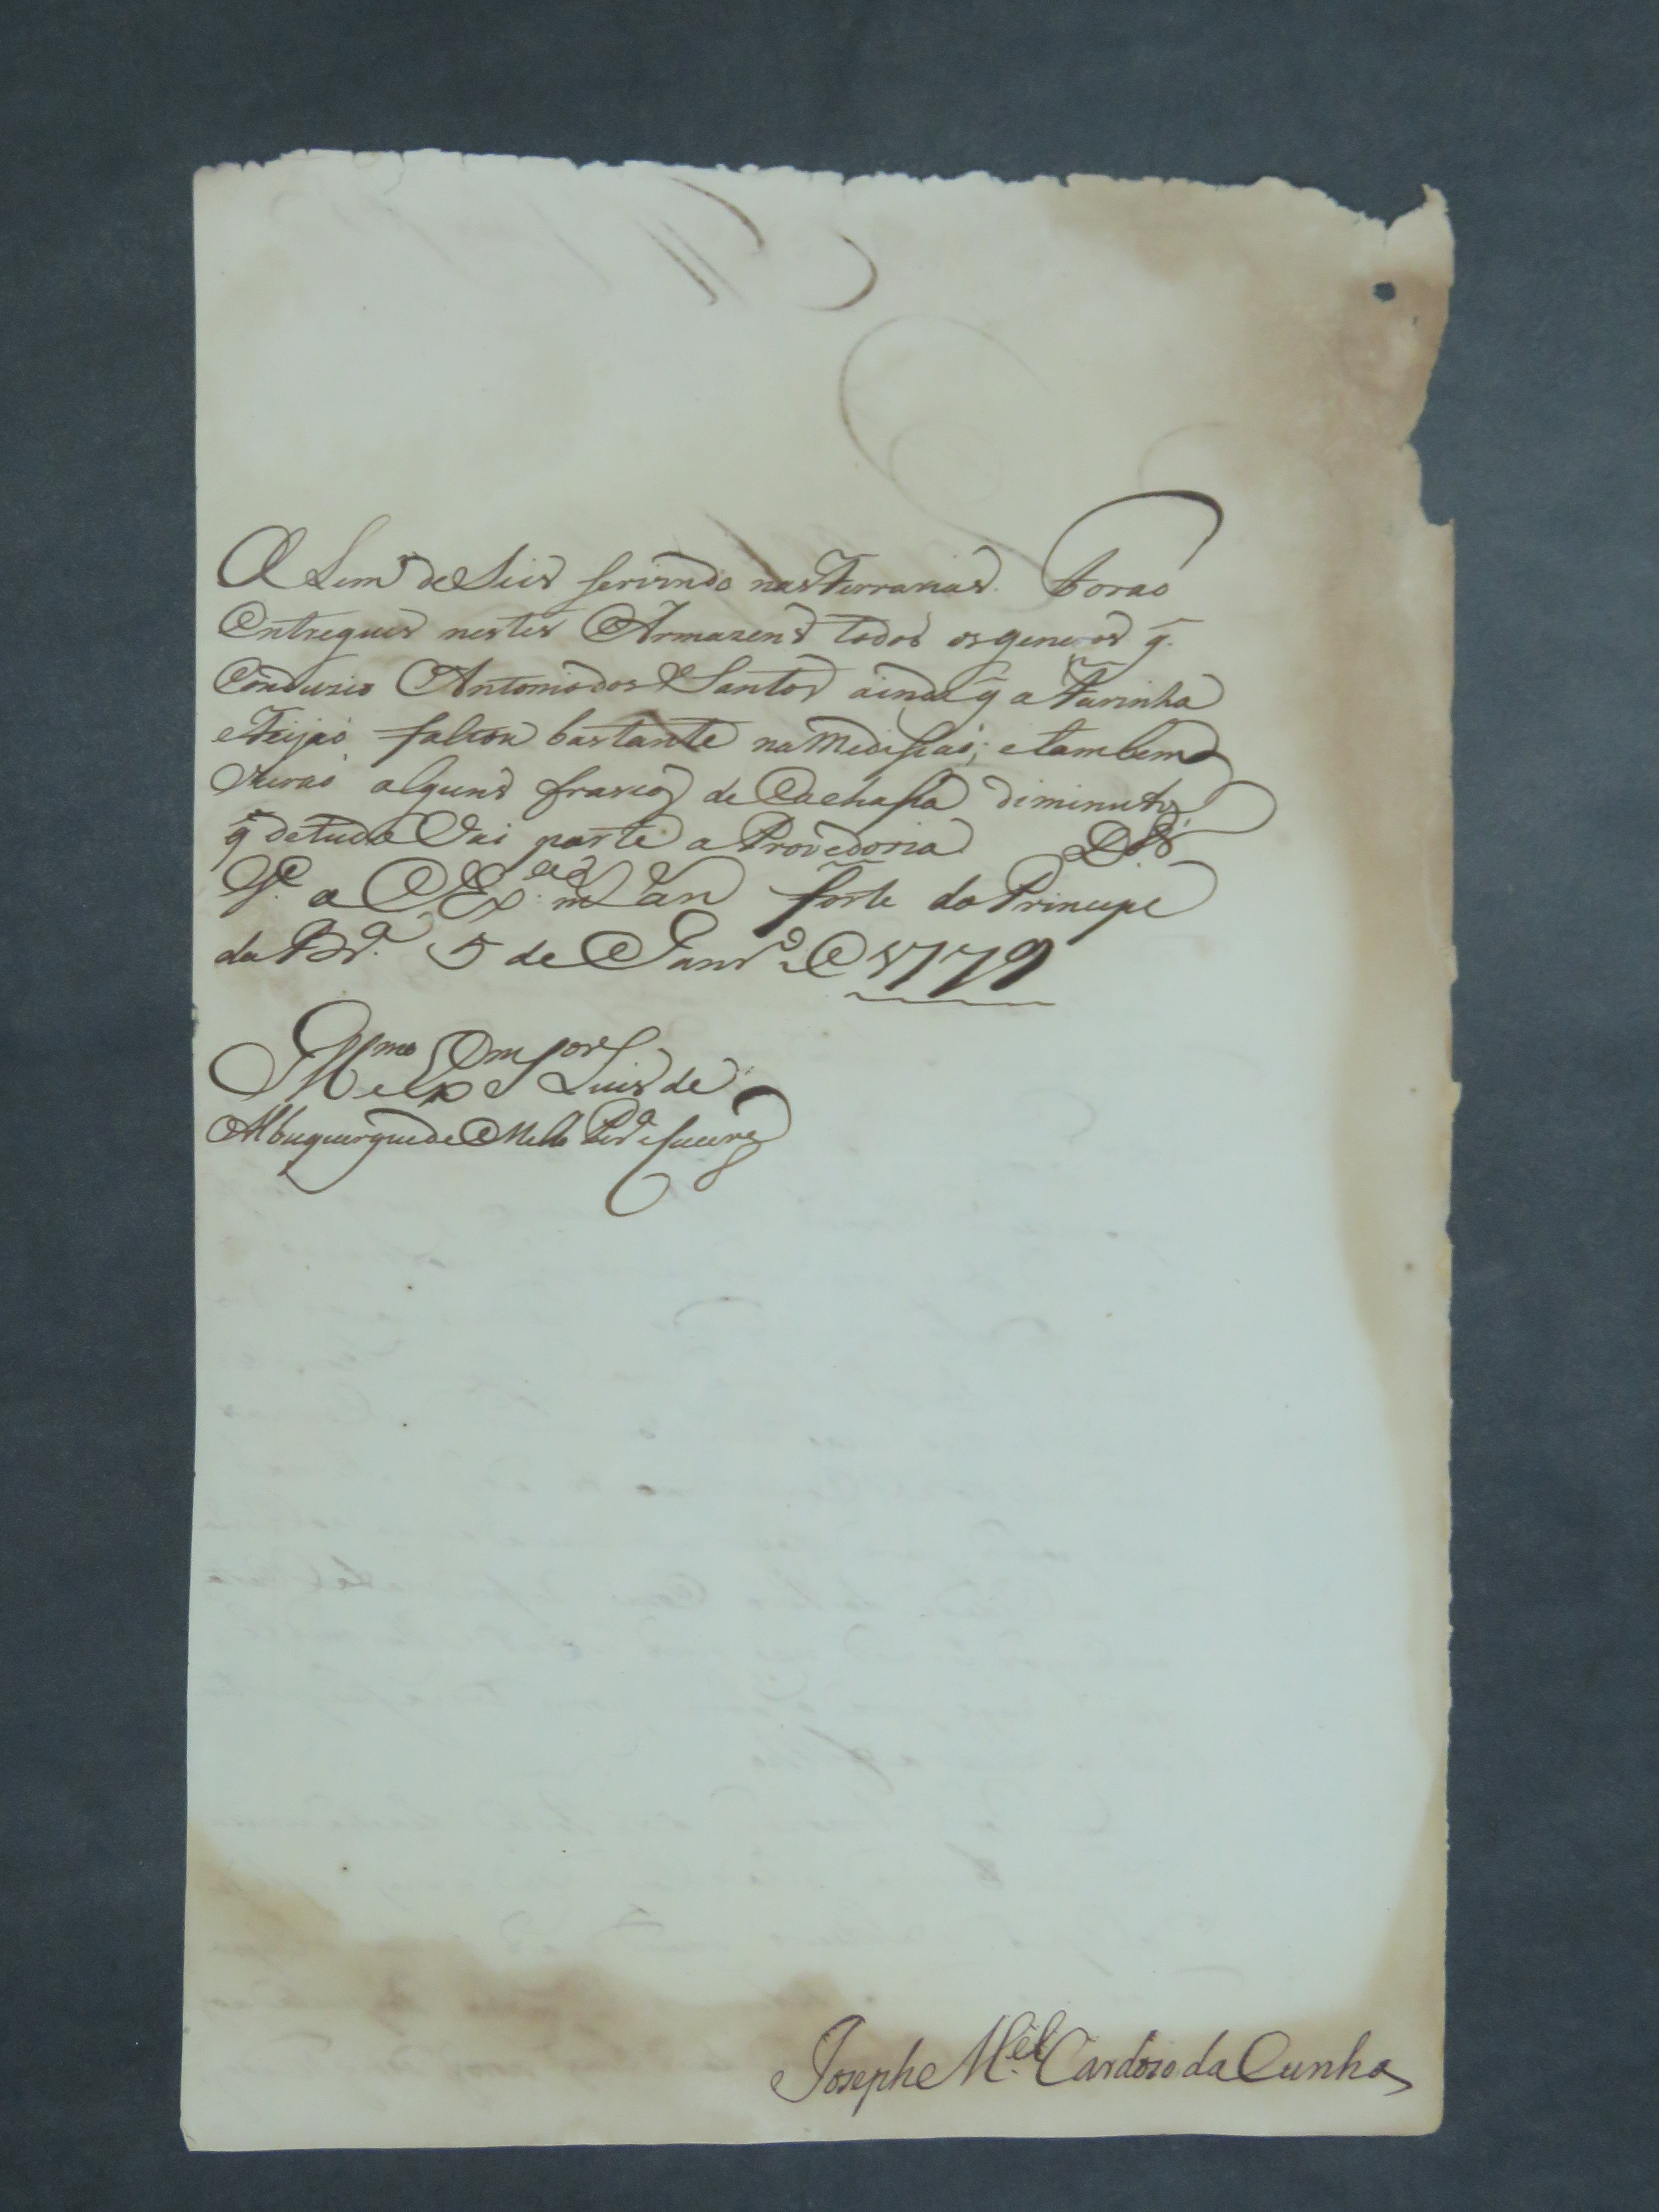 Alem de seis servindo nas Ferrarias. Forao
Entregues nestes Armazens todos os generos q̃
Conduzio Antonio dos Santos ainda q̃ a Farinha
e Feijaõ faltou bastante na Medissaõ; e tambem
vieraõ alguns frascos de Cachassa diminutos,
q̃ de tudo Vai parte a Provedoria. D.s
G.e a V. Ex.a m.s an.s Forte do Principe
da B.ra 5 de Janr.o de 1779
Ill.mo e Ex.mo S.or Luis de
Albuquerque de Mello Per.a e Caceres
Joseph M.el Cardozo da Cunha